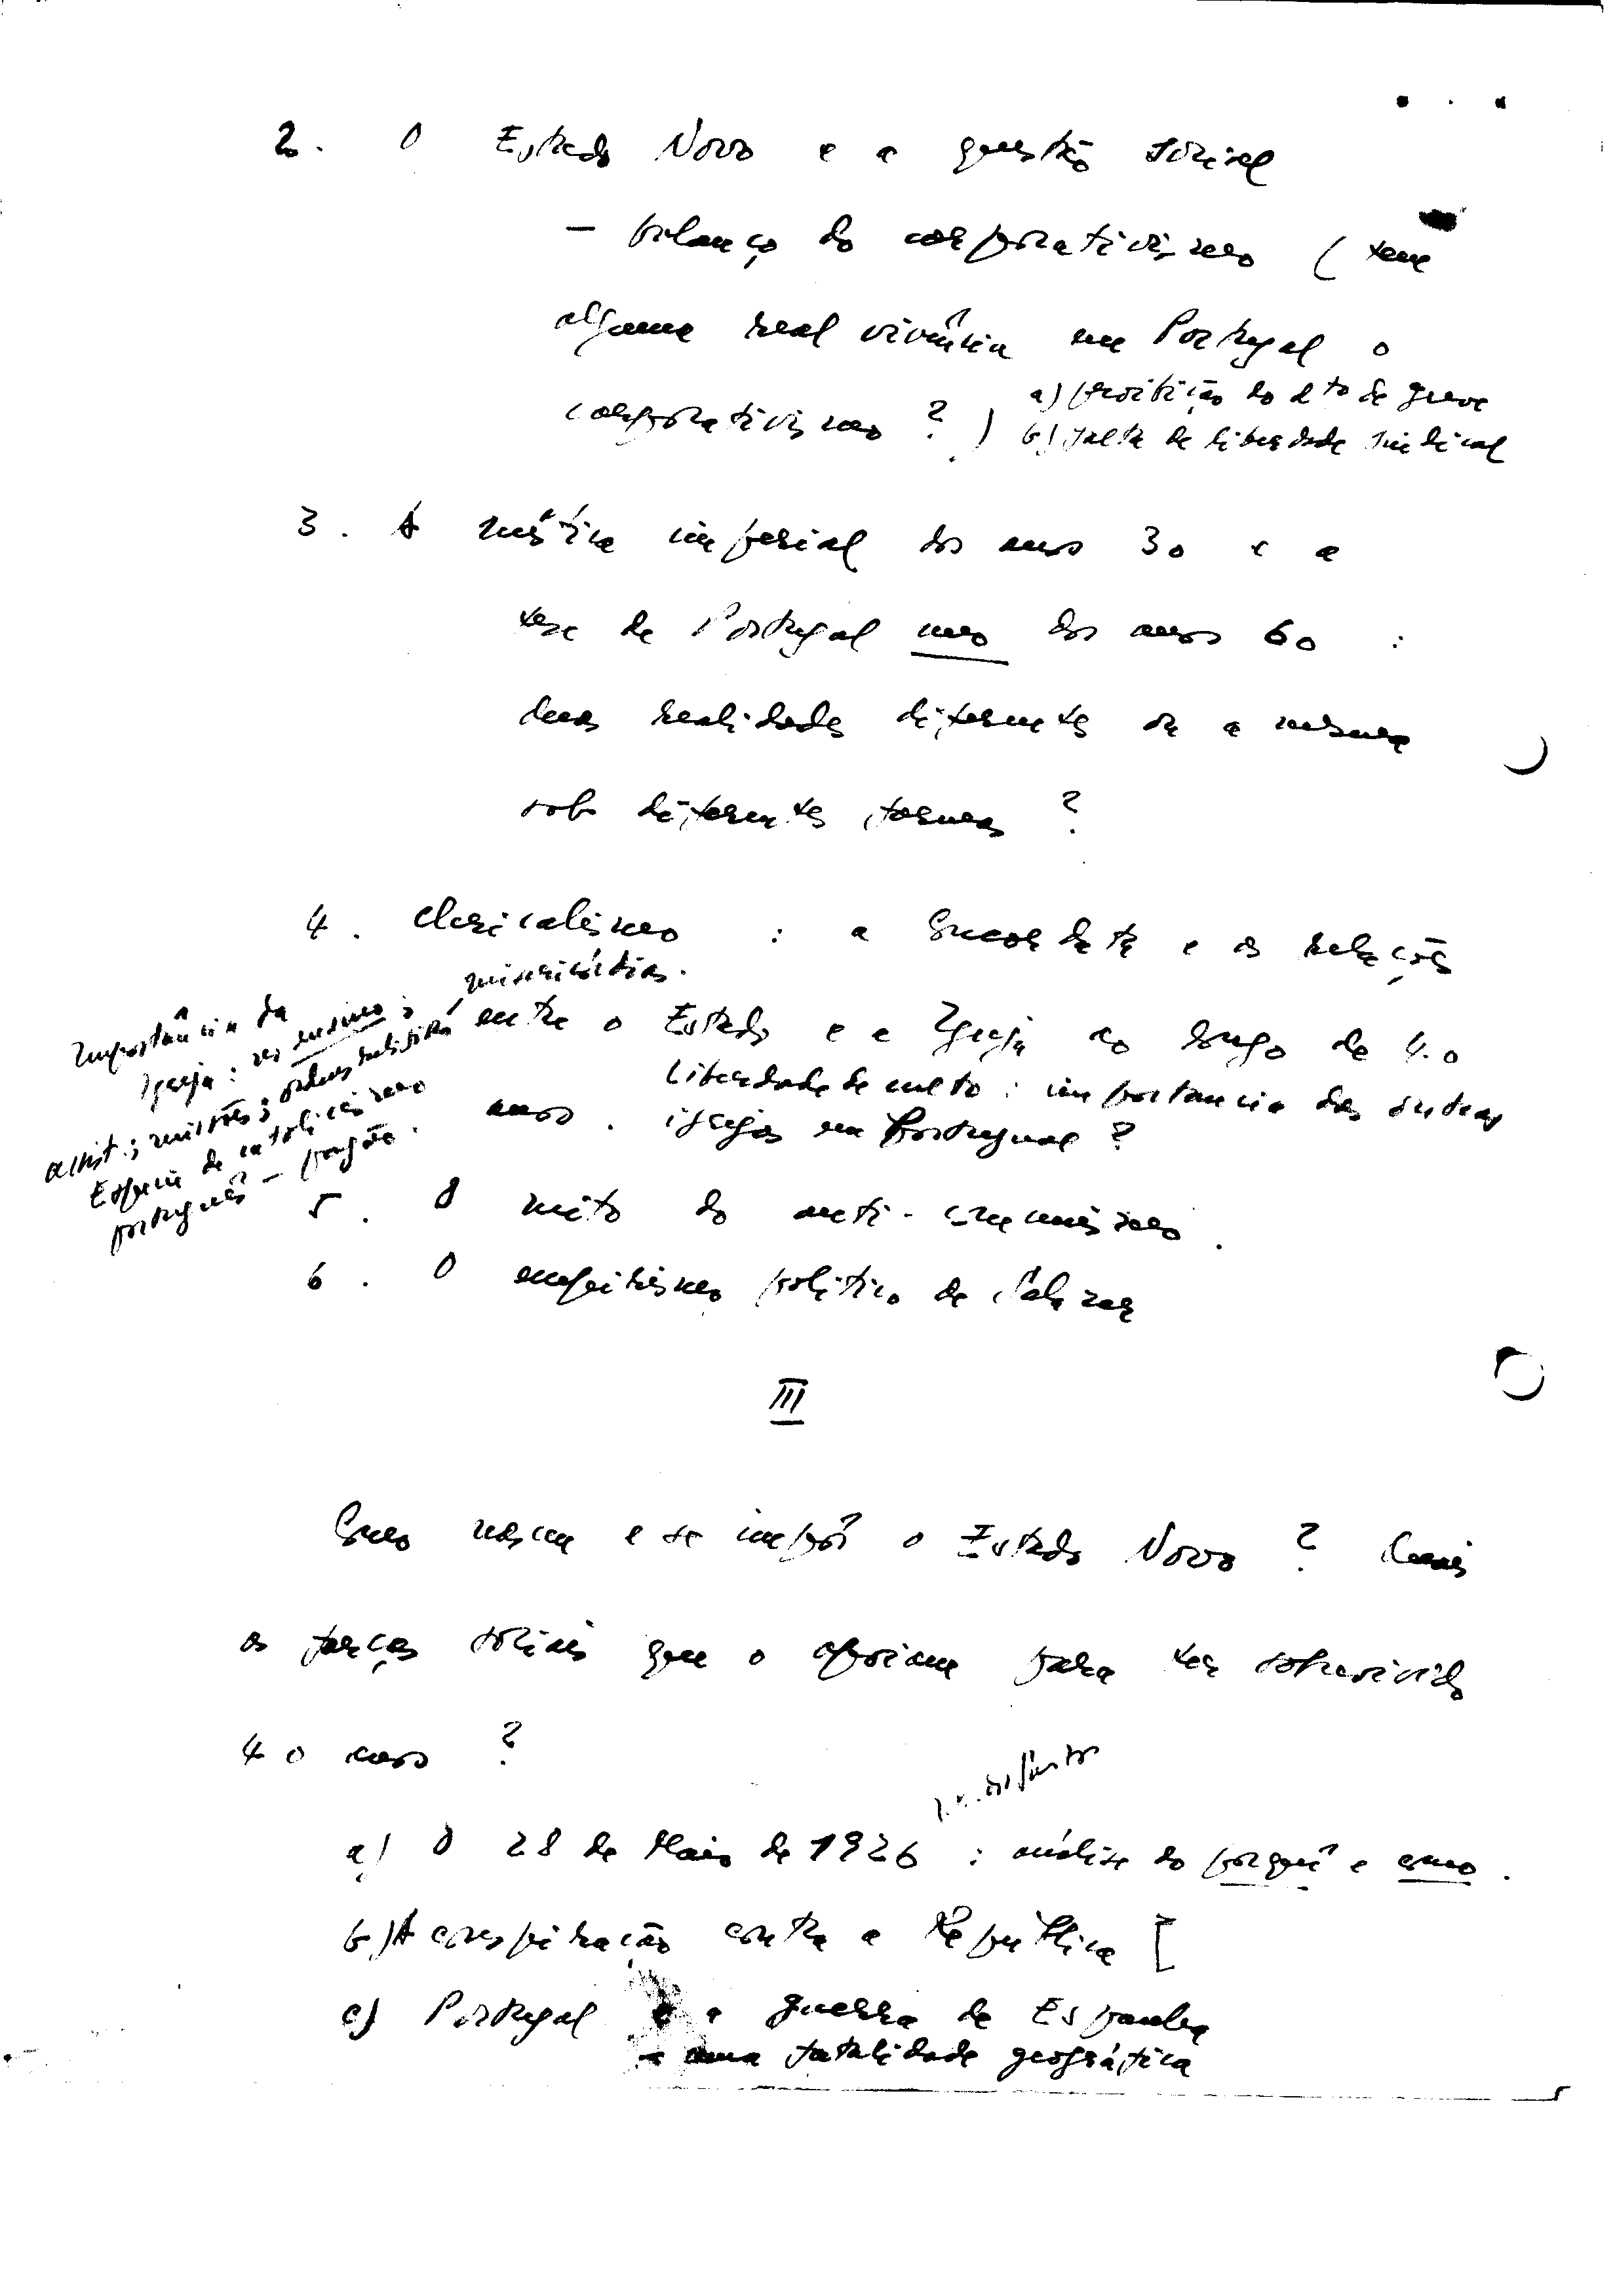 2. O Estado Novo e a questão social
— balanço do corporativismo (tem
alguma real vivência em Portugal o
corporativismo ?)
a) proibição do dto de greve
b) falta de liberdade sindical
3. A mística imperial dos anos 30 e a
tese de Portugal uno dos anos 60 :
duas realidades diferentes ou a mesma
sob diferentes formas ?
4. Clericalismo : a Concordata e as relações
entre o Estado e a Igreja ao longo de 40
anos.
Liberdade de culto : importancia das outras
igrejas em Portugual ?
misericórdias.
Importância da
Igreja : no ensino ;
assist.; missões ; ordens religiosas
Espécie de catolicismo
português — pagão.
5. O mito do anti-comunismo.
6. O empirismo político de Salazar
III
Como nasceu e se impôs o Estado Novo ? Quais
as forças sociais que o apoiam para ter sobrevivido
40 anos ?
a) O 28 de Maio de 1926 : análise do porquê e como.
b) A conspiração contra a República [
c) Portugal e a guerra de Espanha
— uma fatalidade geográfica